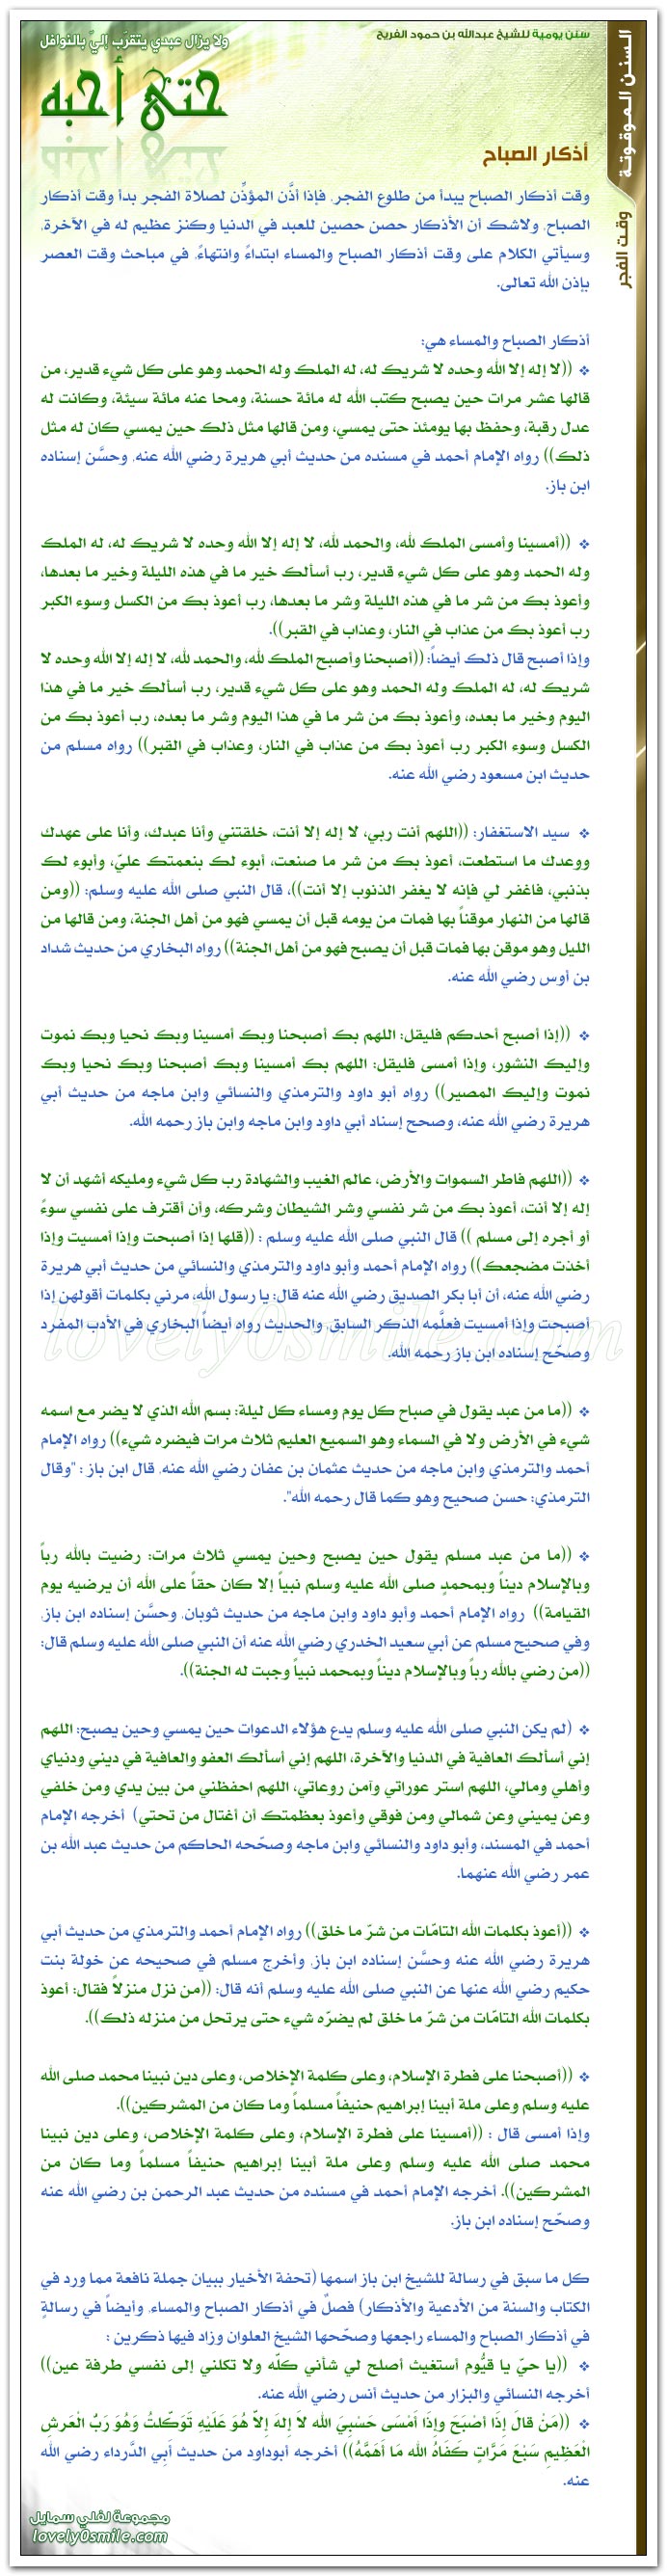 ولا يزال عبدي يتقرَّب إليَّ بالنوافل
حتى أحبه
سنن يومية للشيخ عبدالله بن حمود الفريح
السنن الموقوتة
وقت الفجر
أذكار الصباح
وقت أذكار الصباح يبدأ من طلوع الفجر، فإذا أذَّن المؤذِّن لصلاة الفجر بدأ وقت أذكار
الصباح، ولاشك أن الأذكار حصن حصين للعبد في الدنيا وكنز عظيم له في الآخرة،
وسيأتي الكلام على وقت أذكار الصباح والمساء ابتداءً وانتهاءً، في مباحث وقت العصر
بإذن الله تعالى.
أذكار الصباح والمساء هي:
❖ ((لا إله إلا الله وحده لا شريك له، له الملك وله الحمد وهو على كل شيء قدير، من
قالها عشر مرات حين يصبح كتب الله له مائة حسنة، ومحا عنه مائة سيئة، وكانت له
عدل رقبة، وحفظ بها يومئذ حتى يمسي، ومن قالها مثل ذلك حين يمسي كان له مثل
ذلك)) رواه الإمام أحمد في مسنده من حديث أبي هريرة رضي الله عنه، وحسَّن إسناده
ابن باز.
❖ ((أمسينا وأمسى الملك لله، والحمد لله، لا إله إلا الله وحده لا شريك له، له الملك
وله الحمد وهو على كل شيء قدير، رب أسألك خير ما في هذه الليلة وخير ما بعدها،
وأعوذ بك من شر ما في هذه الليلة وشر ما بعدها، رب أعوذ بك من الكسل وسوء الكبر
رب أعوذ بك من عذاب في النار، وعذاب في القبر)).
وإذا أصبح قال ذلك أيضاً: ((أصبحنا وأصبح الملك لله، والحمد لله، لا إله إلا الله وحده لا
شريك له، له الملك وله الحمد وهو على كل شيء قدير، رب أسألك خير ما في هذا
اليوم وخير ما بعده، وأعوذ بك من شر ما في هذا اليوم وشر ما بعده، رب أعوذ بك من
الكسل وسوء الكبر رب أعوذ بك من عذاب في النار، وعذاب في القبر)) رواه مسلم من
حديث ابن مسعود رضي الله عنه.
❖ سيد الاستغفار: ((اللهم أنت ربي، لا إله إلا أنت، خلقتني وأنا عبدك، وأنا على عهدك
ووعدك ما استطعت، أعوذ بك من شر ما صنعت، أبوء لك بنعمتك عليّ، وأبوء لك
بذنبي، فاغفر لي فإنه لا يغفر الذنوب إلا أنت))، قال النبي صلى الله عليه وسلم: ((ومن
قالها من النهار موقناً بها فمات من يومه قبل أن يمسي فهو من أهل الجنة، ومن قالها من
الليل وهو موقن بها فمات قبل أن يصبح فهو من أهل الجنة)) رواه البخاري من حديث شداد
بن أوس رضي الله عنه.
❖ ((إذا أصبح أحدكم فليقل: اللهم بك أصبحنا وبك أمسينا وبك نحيا وبك نموت
وإليك النشور، وإذا أمسى فليقل: اللهم بك أمسينا وبك أصبحنا وبك نحيا وبك
نموت وإليك المصير)) رواه أبو داود والترمذي والنسائي وابن ماجه من حديث أبي
هريرة رضي الله عنه، وصحح إسناد أبي داود وابن ماجه وابن باز رحمه الله.
❖ ((اللهم فاطر السموات والأرض، عالم الغيب والشهادة رب كل شيء ومليكه أشهد أن لا
إله إلا أنت، أعوذ بك من شر نفسي وشر الشيطان وشركه، وأن أقترف على نفسي سوءً
أو أجره إلى مسلم )) قال النبي صلى الله عليه وسلم : ((قلها إذا أصبحت وإذا أمسيت وإذا
أخذت مضجعك)) رواه الإمام أحمد وأبو داود والترمذي والنسائي من حديث أبي هريرة
رضي الله عنه، أن أبا بكر الصديق رضي الله عنه قال: يا رسول الله، مرني بكلمات أقولهن إذا
أصبحت وإذا أمسيت فعلَّمه الذكر السابق، والحديث رواه أيضاً البخاري في الأدب المفرد
وصحّح إسناده ابن باز رحمه الله.
lovely0smile.com
❖ ((ما من عبد يقول في صباح كل يوم ومساء كل ليلة: بسم الله الذي لا يضر مع اسمه
شيء في الأرض ولا في السماء وهو السميع العليم ثلاث مرات فيضره شيء)) رواه الإمام
أحمد والترمذي وابن ماجه من حديث عثمان بن عفان رضي الله عنه، قال ابن باز : "وقال
الترمذي: حسن صحيح وهو كما قال رحمه الله".
❖ ((ما من عبد مسلم يقول حين يصبح وحين يمسي ثلاث مرات: رضيت بالله رباً
وبالإسلام ديناً وبمحمدٍ صلى الله عليه وسلم نبياً إلا كان حقاً على الله أن يرضيه يوم
القيامة)) رواه الإمام أحمد وأبو داود وابن ماجه من حديث ثوبان، وحسَّن إسناده ابن باز،
وفي صحيح مسلم عن أبي سعيد الخدري رضي الله عنه أن النبي صلى الله عليه وسلم قال:
((من رضي بالله رباً وبالإسلام ديناً وبمحمد نبياً وجبت له الجنة)).
❖ (لم يكن النبي صلى الله عليه وسلم يدع هؤلاء الدعوات حين يمسي وحين يصبح: اللهم
إني أسألك العافية في الدنيا والآخرة، اللهم إني أسألك العفو والعافية في ديني ودنياي
وأهلي ومالي، اللهم استر عوراتي وآمن روعاتي، اللهم احفظني من بين يدي ومن خلفي
وعن يميني وعن شمالي ومن فوقي وأعوذ بعظمتك أن أغتال من تحتي) أخرجه الإمام
أحمد في المسند، وأبو داود والنسائي وابن ماجه وصحّحه الحاكم من حديث عبد الله بن
عمر رضي الله عنهما.
❖ ((أعوذ بكلمات الله التامّات من شرّ ما خلق)) رواه الإمام أحمد والترمذي من حديث أبي
هريرة رضي الله عنه وحسَّن إسناده ابن باز، وأخرج مسلم في صحيحه عن خولة بنت
حكيم رضي الله عنها عن النبي صلى الله عليه وسلم أنه قال: ((من نزل منزلاً فقال: أعوذ
بكلمات الله التامّات من شرّ ما خلق لم يضرّه شيء حتى يرتحل من منزله ذلك)).
❖ ((أصبحنا على فطرة الإسلام، وعلى كلمة الإخلاص، وعلى دين نبينا محمد صلى الله
عليه وسلم وعلى ملة أبينا إبراهيم حنيفاً مسلماً وما كان من المشركين)).
وإذا أمسى قال : ((أمسينا على فطرة الإسلام، وعلى كلمة الإخلاص، وعلى دين نبينا
محمد صلى الله عليه وسلم وعلى ملة أبينا إبراهيم حنيفاً مسلماً وما كان من
المشركين)). أخرجه الإمام أحمد في مسنده من حديث عبد الرحمن بن رضي الله عنه
وصحّح إسناده ابن باز.
كل ما سبق في رسالة للشيخ ابن باز اسمها (تحفة الأخيار ببيان جملة نافعة مما ورد في
الكتاب والسنة من الأدعية والأذكار) فصلٌ في أذكار الصباح والمساء، وأيضاً في رسالةٍ
في أذكار الصباح والمساء راجعها وصحّحها الشيخ العلوان وزاد فيها ذكرين :
❖ ((يا حيّ يا قيُّوم أستغيث أصلح لي شأني كلّه ولا تكلني إلى نفسي طرفة عين))
أخرجه النسائي والبزار من حديث أنس رضي الله عنه.
❖ ((مَنْ قالَ إِذَا أَصْبَحَ وَإِذَا أَمْسَى حَسْبِيَ الله لاَ إِلهَ إِلاَّ هُوَ عَلَيْهِ تَوَكَّلتُ وَهُوَ رَبُّ الْعَرشِ
الْعَظِيمِ سَبْعَ مَرَّاتٍ كَفَاهُ الله مَا أَهَمَّهُ)) أخرجه أبوداود من حديث أَبِي الدَّرداء رضي الله
عنه.
مجموعة لفلي سمايل
lovely0smile.com